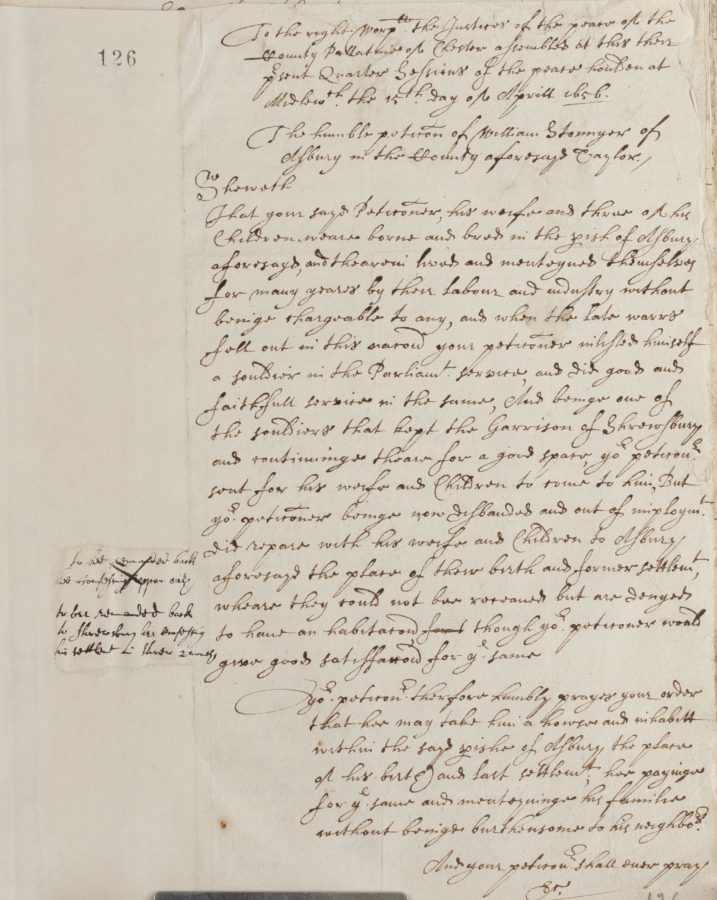 126
To the right Worp:ll the Justices of the peace of the
County Pallatine of Chester assembled at this their
psent Quarter Sessions of the peace houlden at
Midlewch. the 15th. day of Aprill 1656.
The humble peticon of William Stonnyer of
Asbury in the County aforesayd Taylor,
Sheweth
That your sayd Peticoner, his weife and three of his
Children weare borne and bred in the pish of Asbury
aforesayd, and thearein lived and menteyned themselves
for many yeares by their Labour and industry without
beinge chargeable to any, and when the late warrs
fell out in this nacon your peticoner inlisted himself
a souldier in the Parliamt. service, and did good and
faithfull service in the same, And beinge one of
the souldiers that kept the Garrison of Shrewsbury
and continuinge theare for a good space, yor. peticonr.
sent for his weife and Children to come to him, But
yor. peticoner beinge now disbanded and out of imploymt.
did repare with his weife and Children to Asbury
aforesayd the place of their birth and former settlemt,
wheare they could not bee receaved but are denyed
to have an habitacon, though yor. peticoner would
give good satisfaccon for ye. same
to be remanded back
he confessing upon oath
to bee remanded back
to Shrewsbury hee confessing
his settled in three yeares
Yor. peticonr. therfore humbly prayes your order
that hee may take him a howse and inhabitt
within the sayd pishe of Asbury the place
of his birth and last settlemt, hee payinge
for ye. same and menteininge his familie
without beinge burthensome to his neighbors.
And your peticonr. shall ever pray
&c.